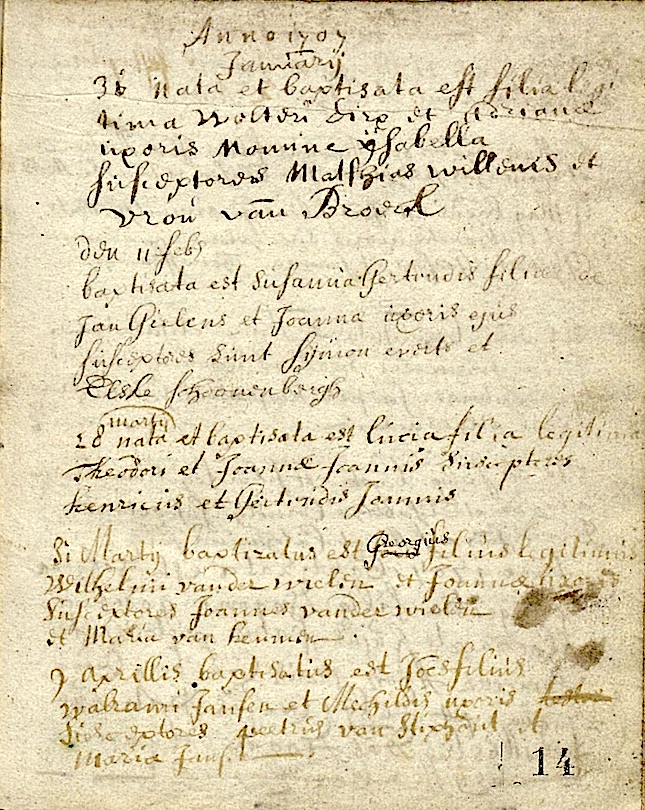 Anno 1707
Januarij
36 Nata et baptisata est filia legi
tima Wolteri Dirx et Adrianæ
uxoris Nomine ÿsabella
susceptores Matthias Willems et
Vroú van Broeck
den 11 feb
baptisata est Susanna Gertrudis filia
Jan Gielens et Joanna uxoris ejus
susceptores sunt Sÿmon everts et
Elske schoonenbergh
marty
28 nata et baptisata est lucia filia legitima
Theodori et Joannæ Joannis Susceptores
henricus et Gertrudis Joannis
Georgius
31 Marty baptizatus est filius legitimus
Wilhelmi vander wielen et Joannæ uxoris
Susceptores Joannes vander wielen
et Maria van heumen
9 Aprillis baptisatus est Joes filius
walravi Jansen et Mechildis uxoris
Susceptores peetrus van Stiphout et
Maria Jans
14